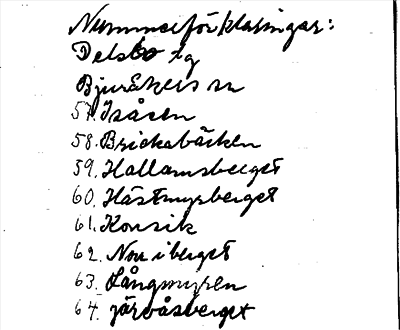 Nummerförklaringar:
Delsbo tg
Bjuråkers sn
57. Isåsen
58. Brickabäcken
59. Hallamsberget
60. Hästmyrberget
61. Korsik
62. Norriberget
63. Långmyren
64. Järvåsberget